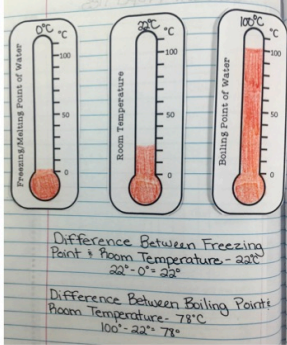 0°C
°C
100
50
0
Freezing/Melting Point of Water
22°C
°C
100
50
0
Room Temperature
100°C
°C
100
50
0
Boiling Point of Water
Difference Between Freezing
Point & Room Temperature - 22°C
22° - 0° = 22°
Difference Between Boiling Point &
Room Temperature - 78°C
100° - 22° = 78°